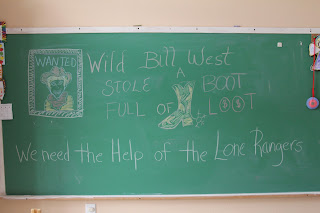 WANTED
Wild Bill West
STOLE A BOOT
FULL OF L$$T
We need the Help of the Lone Rangers